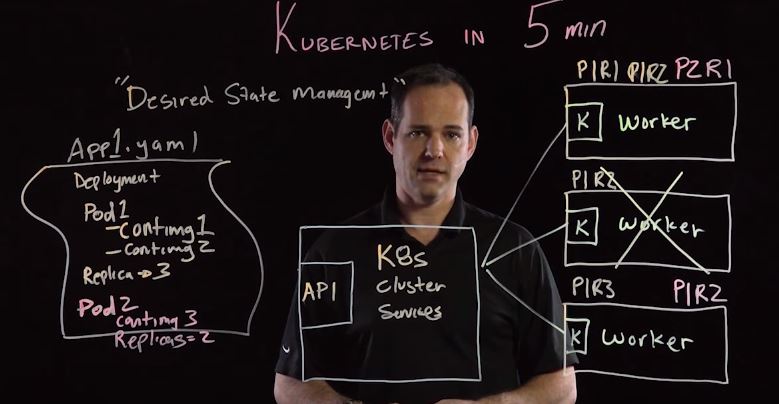 KUBERNETES IN 5 min
"Desired State Managemt"
App1.yaml
Deployment
Pod1
- Contimg1
- Contimg2
Replica → 3
Pod2
contimg3
Replicas=2
API
K8s
Cluster
Services
P1R1 P1R2 P2R1
K Worker
P1R2
K Worker
P1R3 P1R2
K Worker